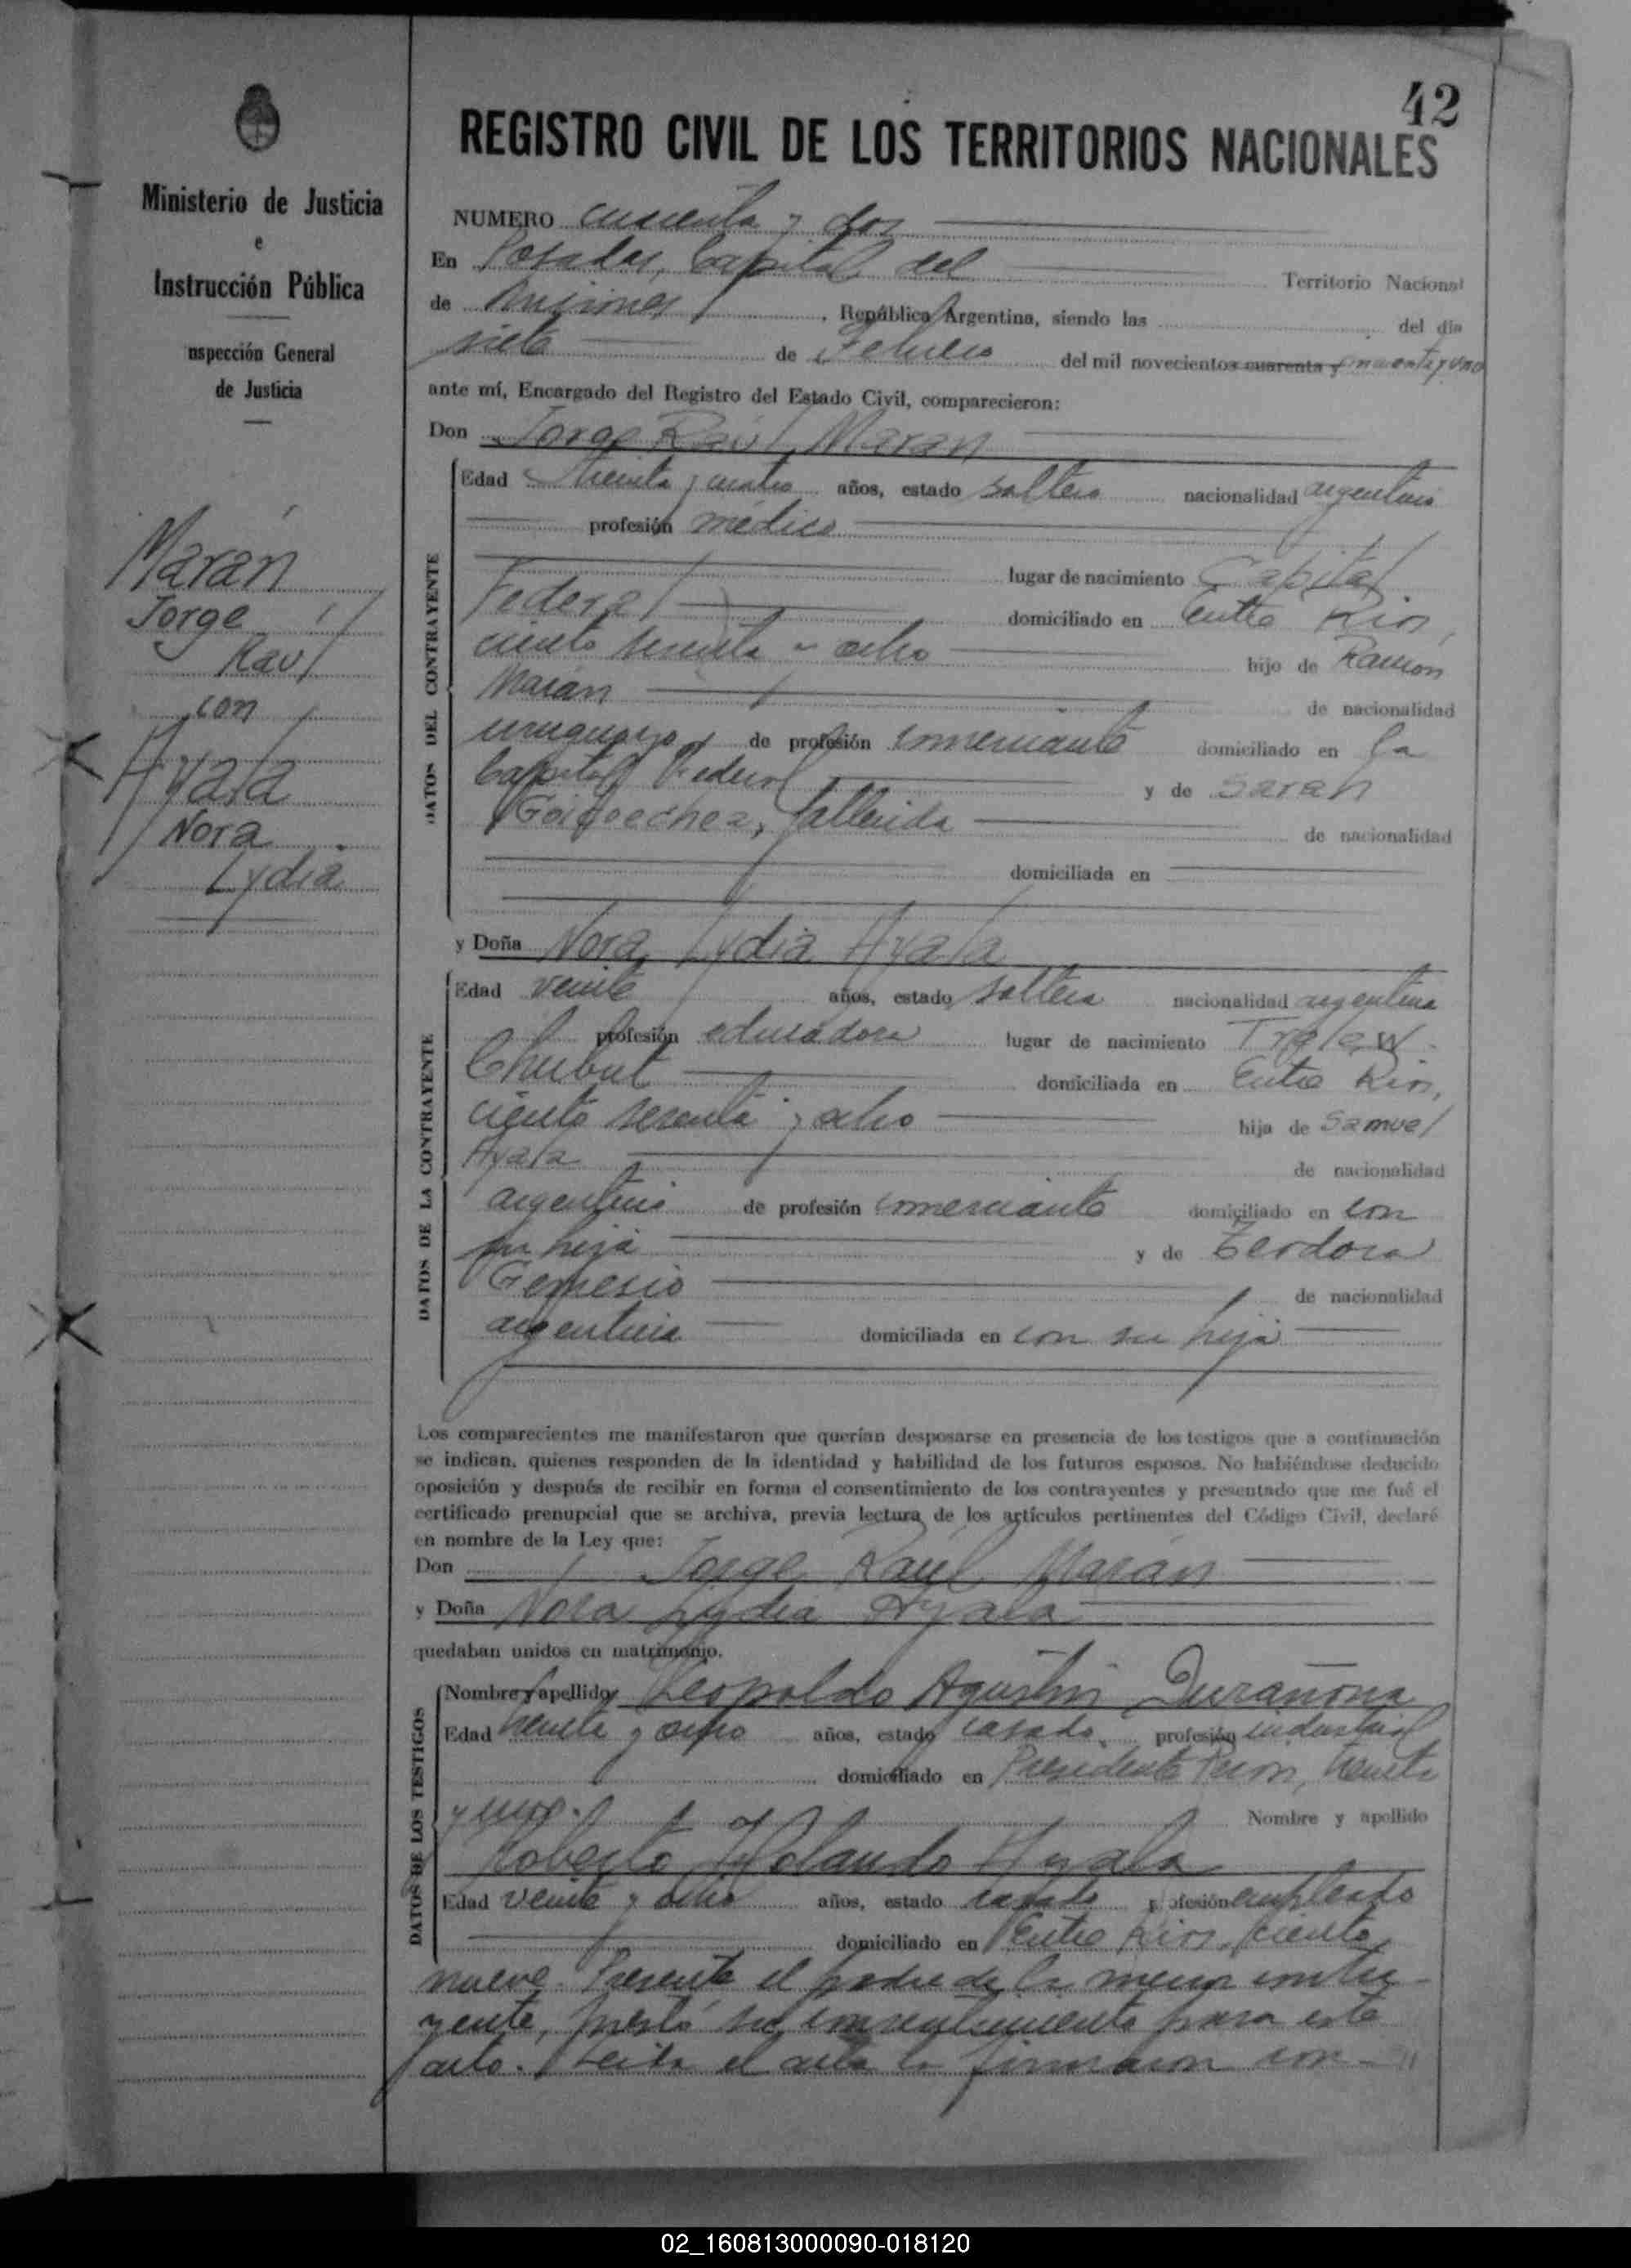 42
REGISTRO CIVIL DE LOS TERRITORIOS NACIONALES
Ministerio de Justicia
e
Instrucción Pública
nspección General
de Justicia
Marán
Jorge
Raúl
con
Ayala
Nora
Lydia
NUMERO cuarenta y dos
En Posadas, Capital del Territorio Nacional
de Misiones, República Argentina, siendo las del día
siete de Febrero del mil novecientos cuarenta y cincuenta y uno
ante mí, Encargado del Registro del Estado Civil, comparecieron:
Don Jorge Raúl Maran
DATOS DEL CONTRAYENTE
Edad treinta y cuatro años, estado soltero nacionalidad argentino
profesión médico
lugar de nacimiento Capital
Federal domiciliado en Entre Rios,
ciento sesenta y ocho hijo de Ramón
Marán de nacionalidad
uruguayo, de profesión comerciante domiciliado en la
Capital Federal y de Sarah
Goigoechea, fallecida de nacionalidad
domiciliada en
y Doña Nora Lydia Ayala
DATOS DE LA CONTRAYENTE
Edad veinte años, estado soltera nacionalidad argentina
profesión educadora lugar de nacimiento Trelew
Chubut domiciliada en Entre Rios,
ciento sesenta y ocho hija de Samuel
Ayala de nacionalidad
argentino de profesión comerciante domiciliado en con
su hija y de Teodora
Genesio de nacionalidad
argentina domiciliada en con su hija
Los comparecientes me manifestaron que querían desposarse en presencia de los testigos que a continuación
se indican, quienes responden de la identidad y habilidad de los futuros esposos. No habiéndose deducido
oposición y después de recibir en forma el consentimiento de los contrayentes y presentado que me fué el
certificado prenupcial que se archiva, previa lectura de los artículos pertinentes del Código Civil, declaré
en nombre de la Ley que:
Don Jorge Raúl Marán
y Doña Nora Lydia Ayala
quedaban unidos en matrimonio.
DATOS DE LOS TESTIGOS
Nombre y apellido Leopoldo Agustin Durañona
Edad treinta y ocho años, estado casado, profesión industrial
domiciliado en Presidente Peron, treinta
y uno. Nombre y apellido
Roberto Holando Ayala
Edad veinte y ocho años, estado casado profesión empleado
domiciliado en Entre Rios, ciento
nueve. Presente el padre de la menor contra-
yente, prestó su consentimiento para este
acto. Leida el acta la firmaron con-
02_160813000090-018120